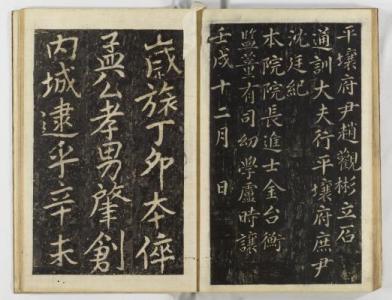 平壤府尹趙觀彬立石
通訓大夫行平壤府庶尹
沈廷紀
本院院長進士金台衡
監董有司幼學盧時讓
壬戌十二月 日
歲旅丁卯本倅
孟公孝男肇創
內城逮乎辛未